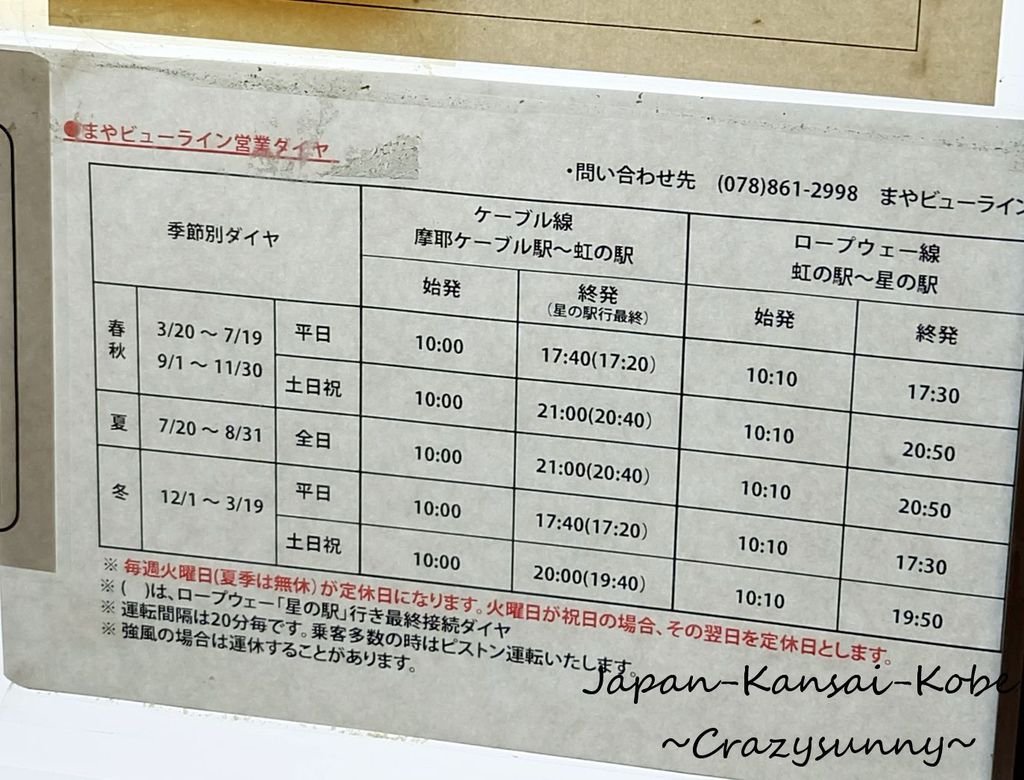 ●まやビューライン営業ダイヤ
・問い合わせ先 (078)861-2998 まやビューライン
季節別ダイヤ
ケーブル線
摩耶ケーブル駅～虹の駅
ロープウェー線
虹の駅～星の駅
始発
終発
(星の駅行最終)
始発
終発
春秋
3/20 ～ 7/19
9/1 ～ 11/30
平日 10:00 17:40(17:20) 10:10 17:30
土日祝 10:00 21:00(20:40) 10:10 20:50
夏 7/20 ～ 8/31 全日 10:00 21:00(20:40) 10:10 20:50
冬 12/1 ～ 3/19
平日 10:00 17:40(17:20) 10:10 17:30
土日祝 10:00 20:00(19:40) 10:10 19:50
※ 毎週火曜日(夏季は無休)が定休日になります。火曜日が祝日の場合、その翌日を定休日とします。
※ ( )は、ロープウェー「星の駅」行き最終接続ダイヤ
※ 運転間隔は20分毎です。乗客多数の時はピストン運転いたします。
※ 強風の場合は運休することがあります。
Japan-Kansai-Kobe
~Crazysunny~